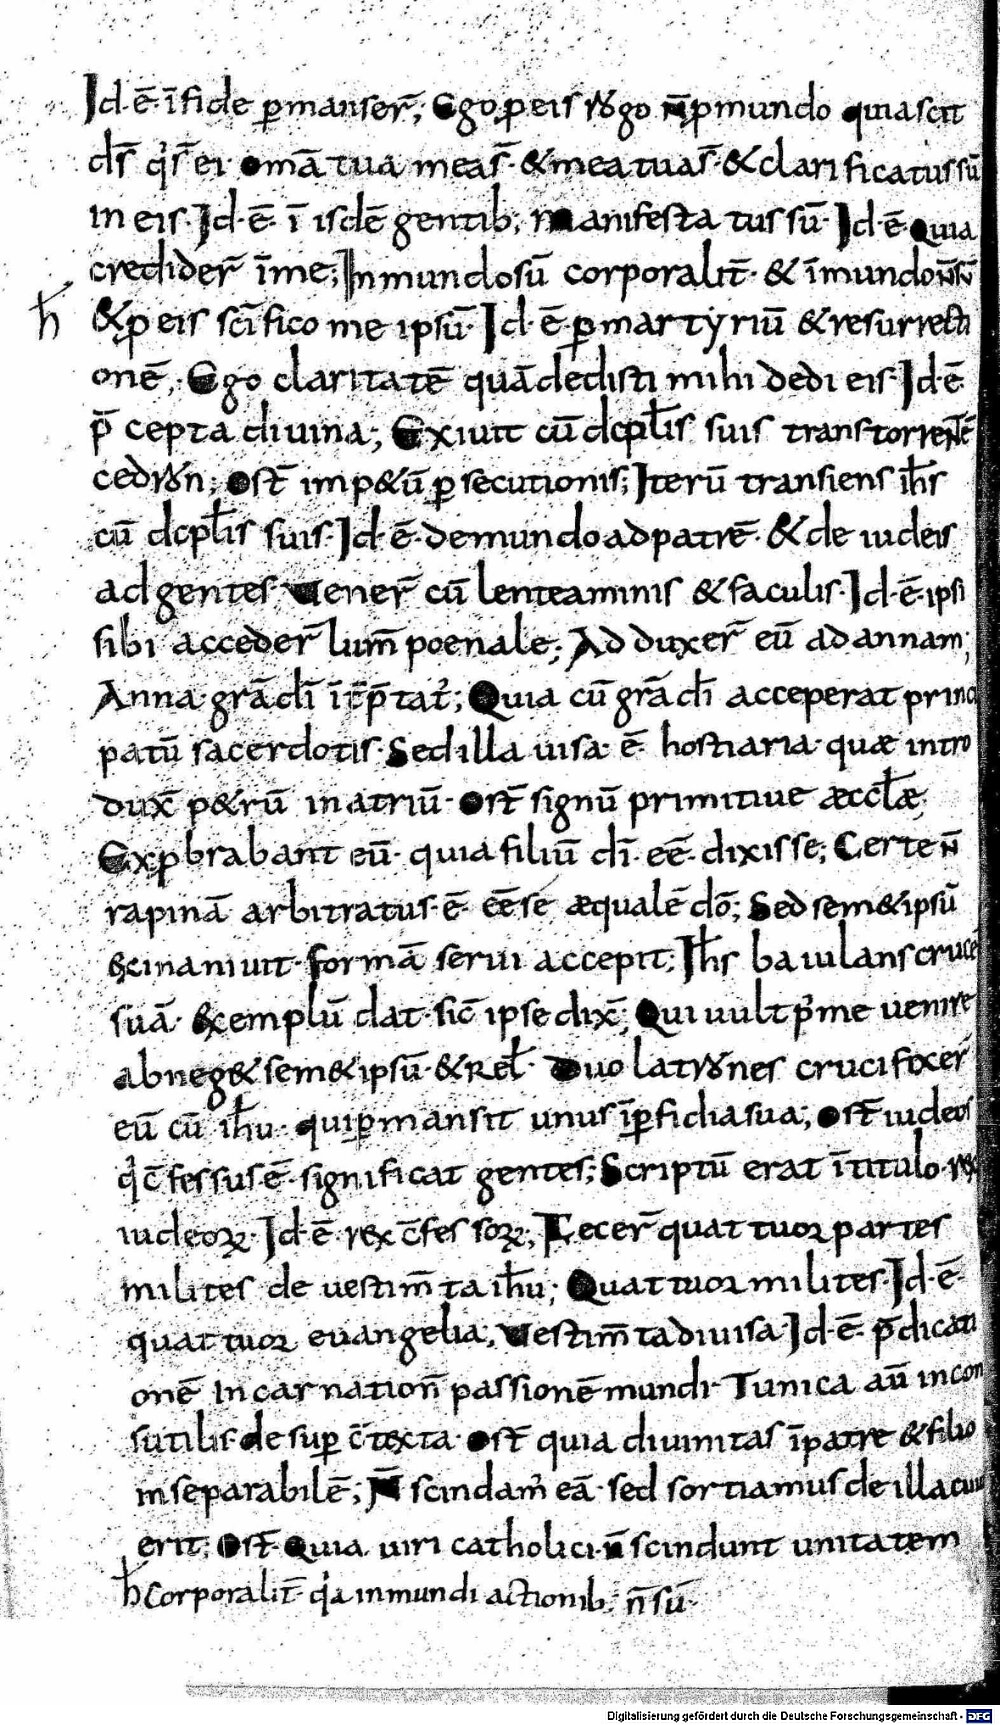 Id·ē· ī fide ꝑmanser̄; Ego ꝓ eis rogo n̄ ꝓ mundo quia scit
d̄s qͥ s̄ ei· Om̄a tua mea s̄· & mea tua s̄· & clarificatus sū
in eis· Id·ē· ī isdē gentib; Manifestatus sū· Id·ē· Quia
credider̄ ī me; In mundo sū corporalit̄· & ī mundo n̄ sū
ħ & ꝓ eis sc̄ifico me ipsū· Id·ē· ꝑ martyriū & resurrecti
onē; Ego claritatē quā dedisti mihi dedi eis· Id·ē·
p̄cepta divina; Exiuit cū dcpl̄is suis trans torrentē
cedron; Ost̄ imp&ū ꝑsecutionis; Iterū transiens ih̄s
cū dcpl̄is suis· Id·ē· de mundo ad patrē· & de iudeis
ad gentes· Uener̄ cū lenteaminis & faculis· Id·ē· ipsi
sibi acceder̄ lum̄ poenale; Adduxer̄ eū ad annam;
Anna· grā dī īt̄p̄tat᷒; Quia cū grā dī acceperat princi
patū sacerdotis· Sed illa uisa· ē· hostiaria· quæ intro
dux̄ p&rū in atriū· Ost̄ signū primitiue æccl̄æ;
Exꝓbrabant eū· quia filiū dī· eē· dixisse; Certe n̄
rapinā arbitratus· ē· eē se æqualē dō; Sed sem&ipsū
exinaniuit· formā serui accepit; Ih̄s baiulans crucē
suā· exemplū dat· sic̄ ipse dix̄; Qui uult p᷒ me uenire
abneg& sem&ipsū· & rel̄· Duo latrones crucifixer̄
eū cū ih̄u· qui ꝑmansit unus ī ꝑfidia sua; Ost̄ iudeos
qͥ c̄fessus ē· significat gentes; Scriptū erat ī titulo· rex
iudeoꝝ· Id·ē· rex c̄fessoꝝ; Fecer̄ quattuor partes
milites de uestim̄ta ih̄u; Quattuor milites· Id·ē·
quattuor euangelia; Uestim̄ta diuisa· Id·ē· p̄dicati
onē incarnation̄ passionē mundi· Tunica aū incon
sutilis· de suꝑ c̄texta· Ost̄ quia diuinitas ī patre & filio
inseparabilē; N̄ scindam᷒ eā· sed sortiamus de illa cuius
erit; Ost̄· Quia uiri catholici· n̄ scindunt unitatem
ħ Corporalit̄ qͥa in mundi actionib; n̄ sū·
Digitalisierung gefördert durch die Deutsche Forschungsgemeinschaft - DFG